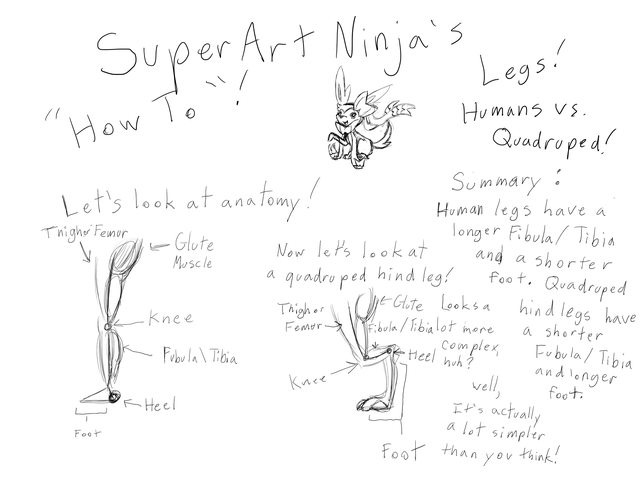 SuperArt Ninja's
"How To"!
Legs!
Humans vs.
Quadruped!
Let's look at anatomy!
Thigh or Femur
Glute
Muscle
Knee
Fubula\Tibia
Heel
Foot
Now let's look at
a quadruped hind leg!
Thigh or
Femur
Glute
Fibula/Tibia
Heel
Knee
Foot
Looks a
lot more
complex,
huh?
well,
It's actually
a lot simpler
than you think!
Summary:
Human legs have a
longer Fibula/Tibia
and a shorter
foot. Quadruped
hind legs have
a shorter
Fubula/Tibia
and longer
foot.